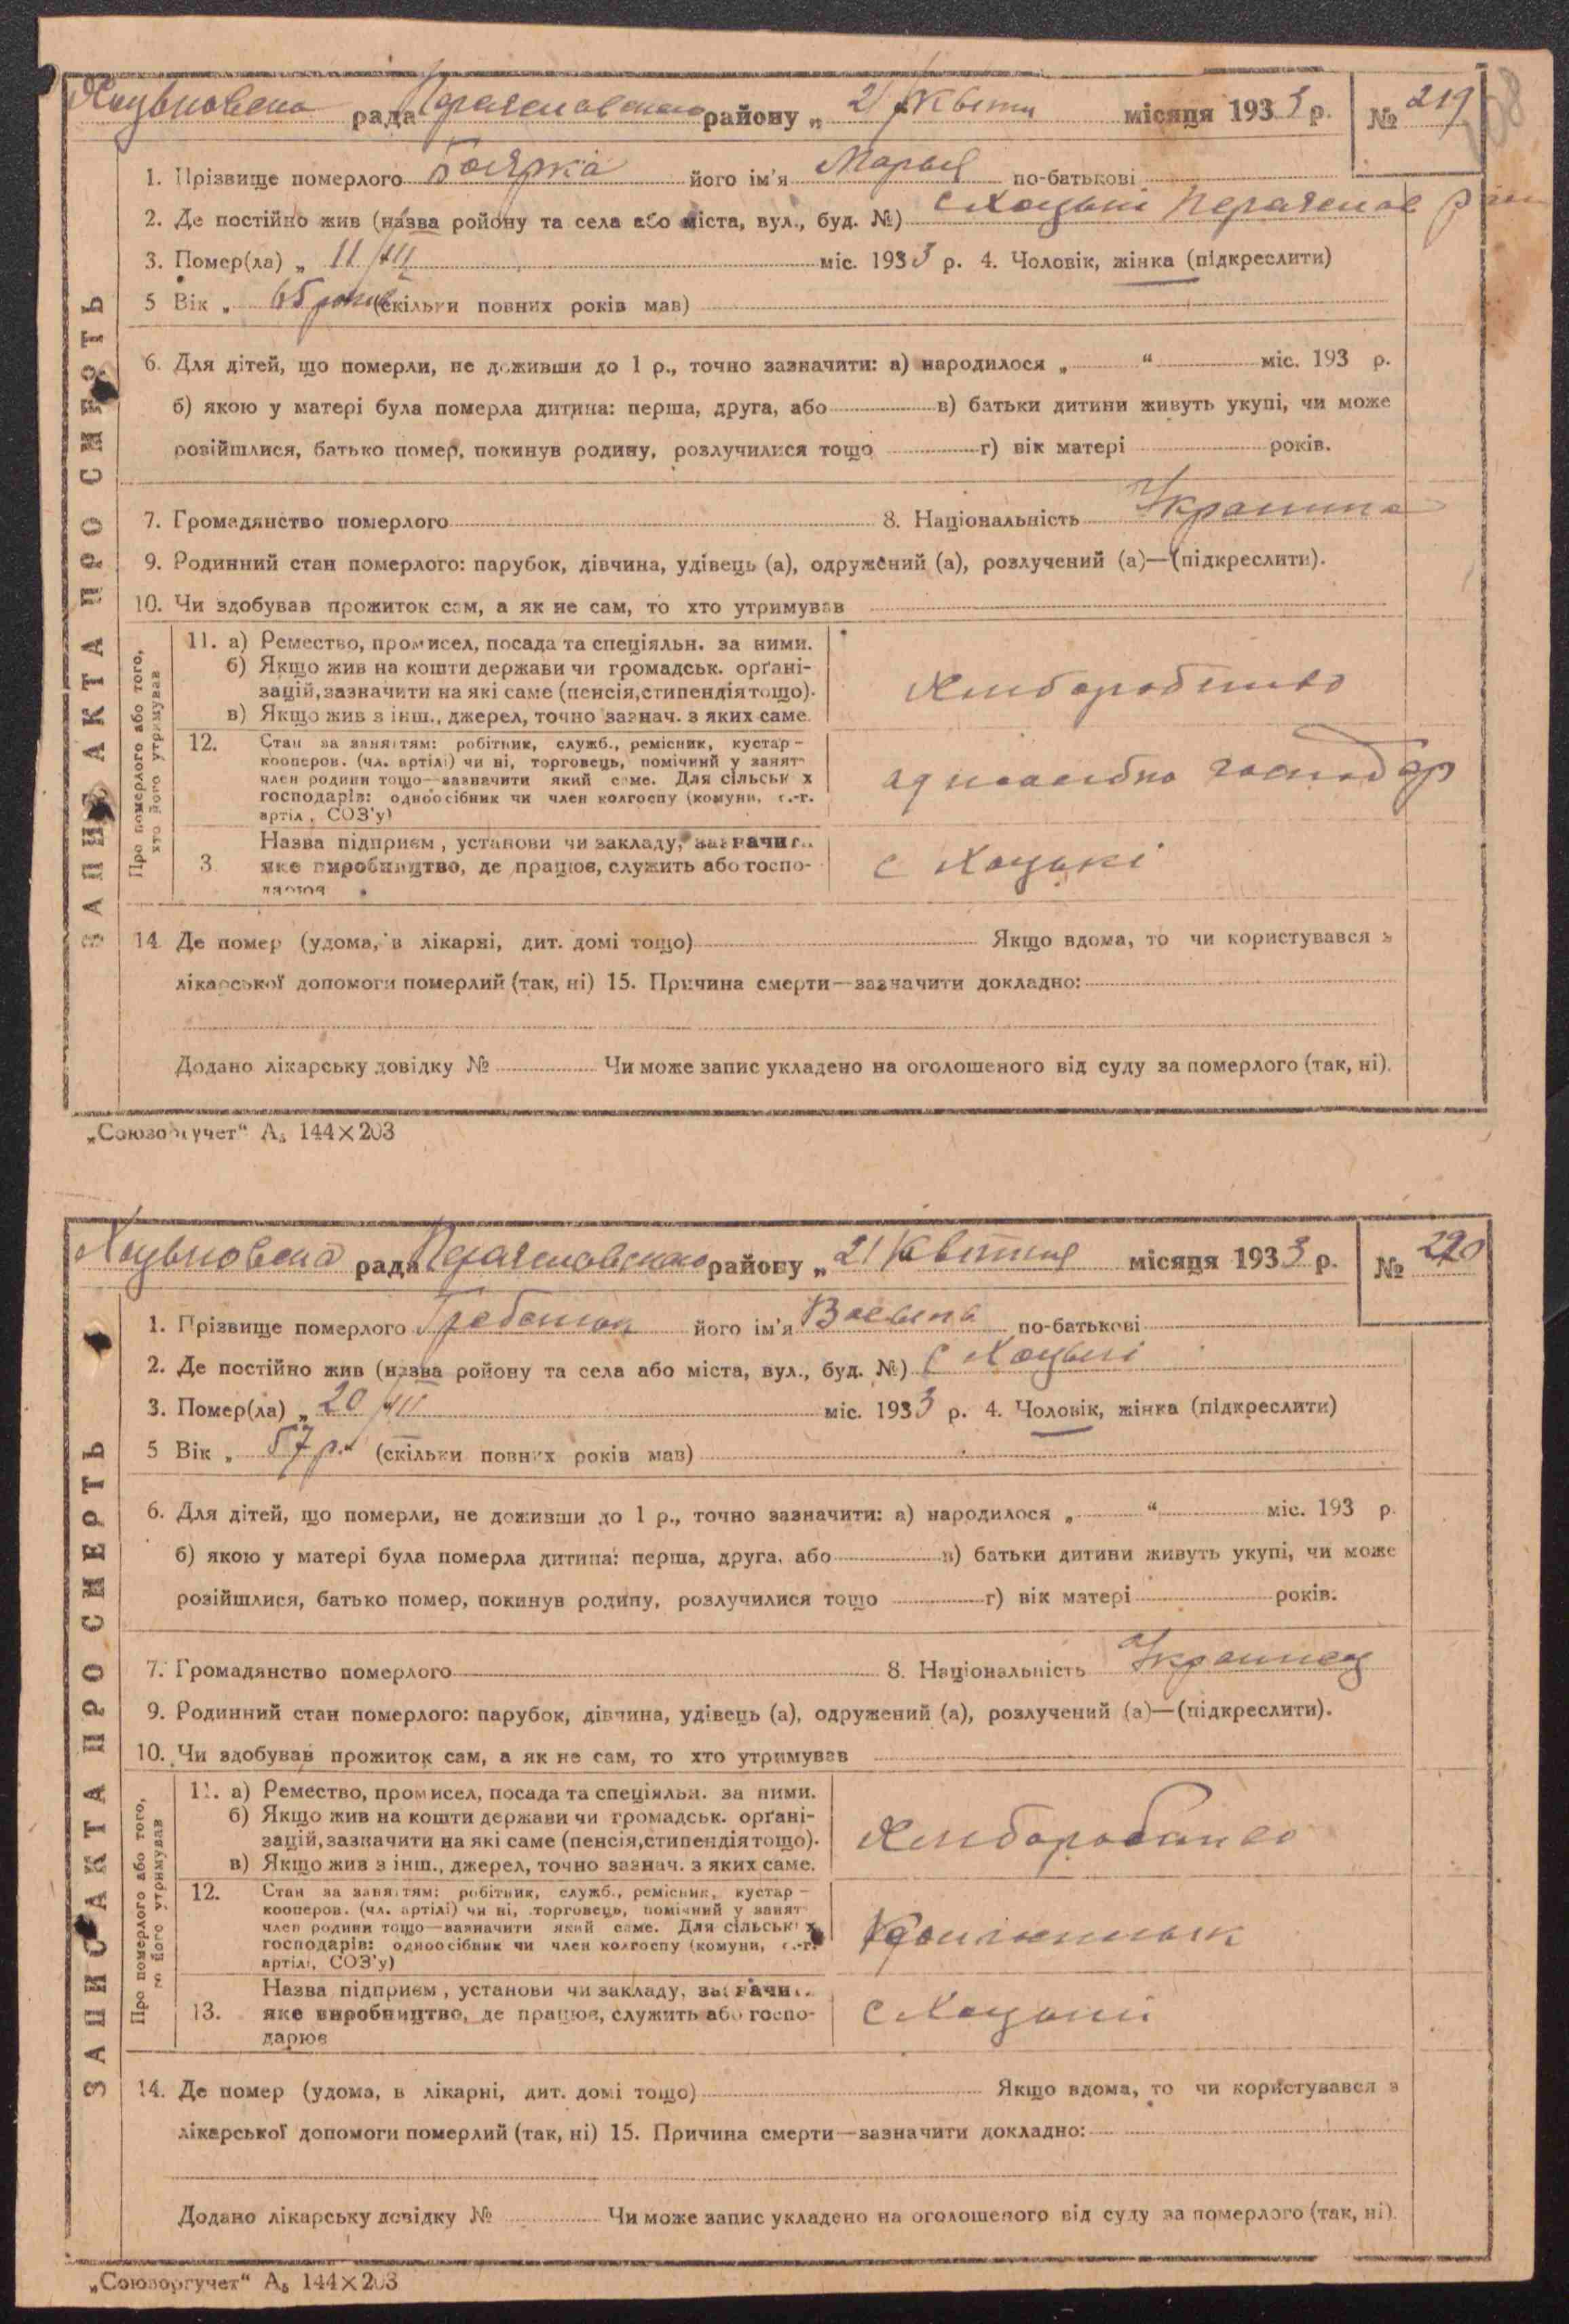 Хоцьковська рада Переяславського району „ 21 / Квітня місяця 1933 р. № 219
1. Прізвище померлого Боярка його ім'я Марья по-батькові
2. Де постійно жив (назва ройону та села або міста, вул., буд. №) с Хоцьки Переяслав
3. Помер(ла) „ 11/III міс. 1933 р. 4. Чоловік, жінка (підкреслити)
5 Вік „ 65 років (скільки повних років мав)
6. Для дітей, що померли, не доживши до 1 р., точно зазначити: а) народилося „ “ міс. 193 р.
б) якою у матері була померла дитина: перша, друга, або в) батьки дитини живуть укупі, чи може
розійшлися, батько помер, покинув родину, розлучилися тощо г) вік матері років.
7. Громадянство померлого 8. Національність Украинка
9. Родинний стан померлого: парубок, дівчина, удівець (а), одружений (а), розлучений (а)—(підкреслити).
10. Чи здобував прожиток сам, а як не сам, то хто утримував
ЗАПИС АКТА ПРО СМЕРТЬ
Про померлого або того,
хто його утримував
11. а) Ремество, промисел, посада та спеціяльн. за ними.
б) Якщо жив на кошти держави чи громадськ. орґані-
зацій, зазначити на які саме (пенсія, стипендія тощо).
в) Якщо жив з інш., джерел, точно зазнач. з яких саме.
Хлиборобство
12. Стан за заняттям: робітник, служб., ремісник, кустар—
кооперов. (чл. артілі) чи ні, торговець, помічний у занят
член родини тощо—зазначити який саме. Для сільських
господарів: одноосібник чи член колгоспу (комуни, с.-г.
артіл, СОЗ'у)
господар
Назва підприєм, установи чи закладу, зазначи
3 яке виробництво, де працює, служить або госпо-
дарює
с Хоцькі
14 Де помер (удома, в лікарні, дит. домі тощо) Якщо вдома, то чи користувався з
лікарської допомоги померлий (так, ні) 15. Причина смерти—зазначити докладно:
Додано лікарську довідку № Чи може запис укладено на оголошеного від суду за померлого (так, ні).
„Союзоргучет“ А₅ 144×203
Хоцьковська рада Переяславського району „ 21 / Квітня місяця 1933 р. № 220
1. Прізвище померлого його ім'я по-батькові
2. Де постійно жив (назва ройону та села або міста, вул., буд. №) с Хоцьки
3. Помер(ла) „ 20/III міс. 1933 р. 4. Чоловік, жінка (підкреслити)
5 Вік „ 57 р. (скільки повних років мав)
6. Для дітей, що померли, не доживши до 1 р., точно зазначити: а) народилося „ “ міс. 193 р.
б) якою у матері була померла дитина: перша, друга, або в) батьки дитини живуть укупі, чи може
розійшлися, батько помер, покинув родину, розлучилися тощо г) вік матері років.
7. Громадянство померлого 8. Національність Украинец
9. Родинний стан померлого: парубок, дівчина, удівець (а), одружений (а), розлучений (а)—(підкреслити).
10. Чи здобував прожиток сам, а як не сам, то хто утримував
ЗАПИС АКТА ПРО СМЕРТЬ
Про померлого або того,
то його утримував
11. а) Ремество, промисел, посада та спеціяльн. за ними.
б) Якщо жив на кошти держави чи громадськ. орґані-
зацій, зазначити на які саме (пенсія, стипендія тощо).
в) Якщо жив з інш., джерел, точно зазнач. з яких саме.
Хлиборобство
12. Стан за заняттям: робітник, служб., ремісник, кустар—
кооперов. (чл. артілі) чи ні, торговець, помічний у занят
член родини тощо—зазначити який саме. Для сільських
господарів: одноосібник чи член колгоспу (комуни, с.-г.
артілі, СОЗ'у)
Назва підприєм, установи чи закладу, зазначи
13. яке виробництво, де працює, служить або госпо-
дарює
с Хоцьки
14. Де помер (удома, в лікарні, дит. домі тощо) Якщо вдома, то чи користувався з
лікарської допомоги померлий (так, ні) 15. Причина смерти—зазначити докладно:
Додано лікарську довідку № Чи може запис укладено на оголошеного від суду за померлого (так, ні).
„Союзоргучет“ А₅ 144×203